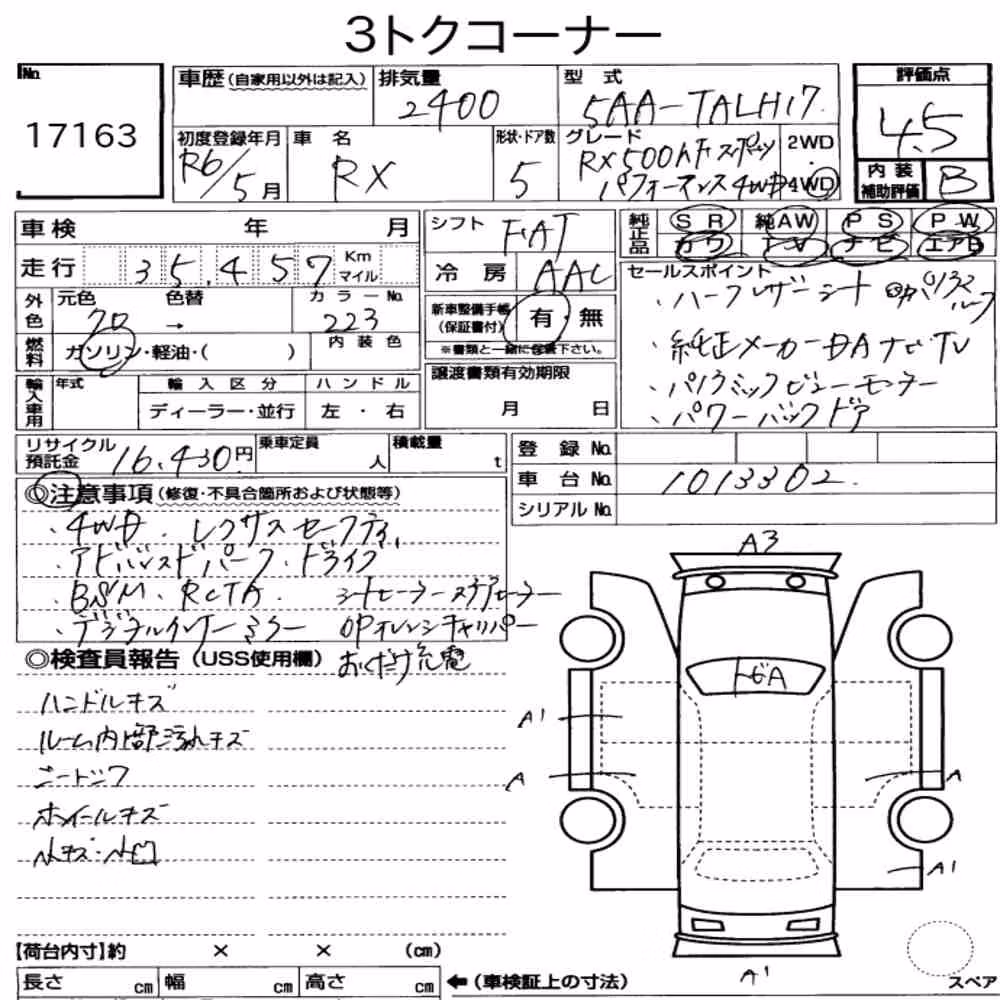 3トクコーナー
No.
17163
車歴(自家用以外は記入)
排気量
2400
型 式
5AA-TALH17
評価点
4.5
初度登録年月
R6/5月
車 名
RX
形状・ドア数
5
グレード
RX500h Fスポーツ
パフォーマンス4WD
2WD
・
4WD
内装
補助評価
B
車検 年 月
シフト
FAT
純正品
SR
純AW
PS
PW
カワ
TV
ナビ
エアB
走行
35,457
Km
マイル
冷房
AAC
セールスポイント
・ハーフレザーシート
・純正メーカーDAナビTV
・パノラミックビューモニター
・パワーバックドア
外色
元色 色替
70 →
カラーNo.
223
新車整備手帳
(保証書付)
有・無
※書類と一緒に保管下さい。
燃料
ガソリン・軽油・( )
内装色
輸入車用
年式
輸入区分
ディーラー・並行
ハンドル
左・右
譲渡書類有効期限
月 日
リサイクル
預託金
16,430円
乗車定員
人
積載量
t
登録No.
車台No.
1013302
シリアルNo.
◎注意事項(修復・不具合箇所および状態等)
・4WD. レクサスセーフティ
・アドバンスドパーク・ドライブ
・BSM. RCTA. シートヒーターステアヒーター
・デジタルインナーミラー OPオレンジキャリパー
おくだけ充電
◎検査員報告(USS使用欄)
ハンドルキズ
ルーム内上部汚れキズ
シートシワ
ホイールキズ
小キズ・小凹
A3
トビA
A1
A
A
A1
A1
スペア
【荷台内寸】約 × × (cm)
長さ cm
幅 cm
高さ cm
←(車検証上の寸法)